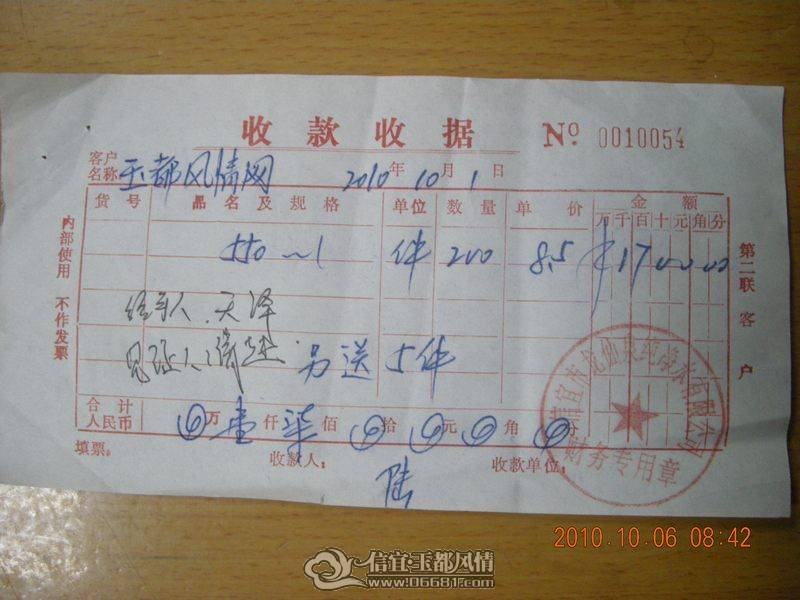 收款收据 Nº 0010054
客户名称 玉都风情网 2010年10月1日
货号 品名及规格 单位 数量 单价 金额
万千百十元角分
550ml 件 200 8.5 ¥170000
经手人:天泽
见证人: 另送5件
合计人民币 ⓪万壹仟柒佰⓪拾⓪元⓪角⓪分
填票: 收款人: 陆 收款单位:
内部使用 不作发票
第二联 客户
信宜市龙仙泉纯净水有限公司
财务专用章
2010.10.06 08:42
信宜玉都风情
www.06681.com